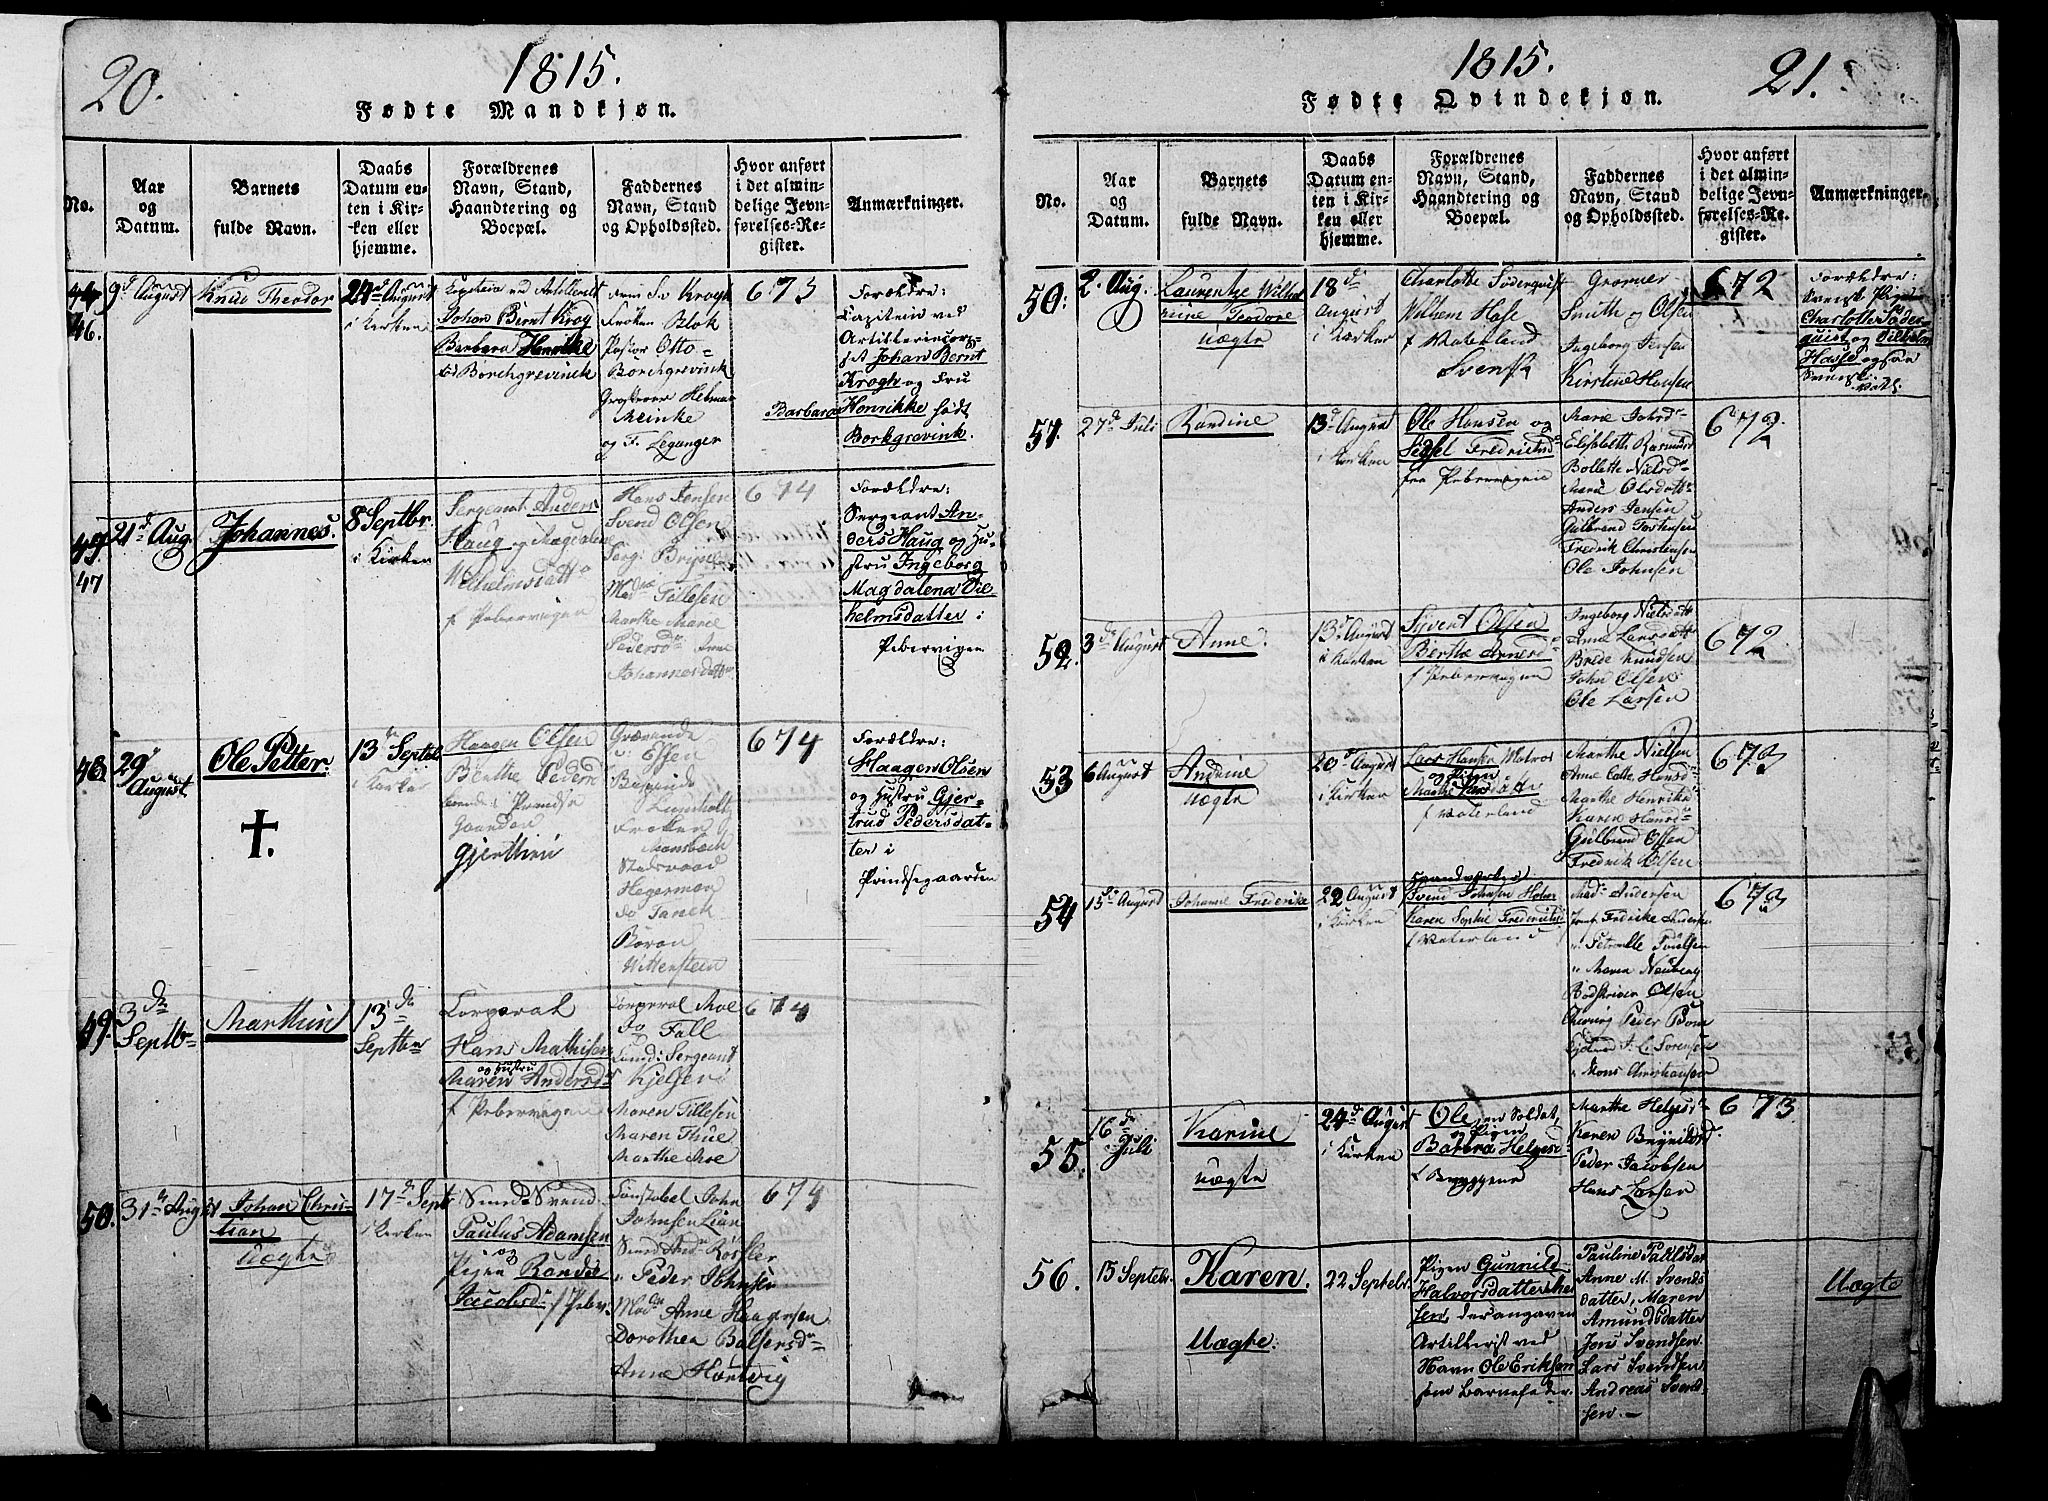 20.
1815.
Fødte Mandkjøn.
No.
Aar
og
Datum.
Barnets
fulde Navn.
Daabs
Datum en-
ten i Kir-
ken eller
hjemme.
Forældrenes
Navn, Stand,
Haandtering og
Boepæl.
Faddernes
Navn, Stand
og Opholdssted.
Hvor anført
i det almin-
delige Jevn-
førelses-Re-
gister.
Anmærkninger.
46.
9d August
Knud Theodor
24d August
i Kirken
Johan Bernt Krog
Barbara Henrikke
Borchgrevinck
Krogh
Frøken Blok
Pastor Otto
Borchgrevink
Meinke
og F. Leganger
673
Barbara
Forældre:
Capitein ved
Artilleriecorp-
set Johan Bernt
Krogh og Fru
Henrikke født
Borkgrevink.
47
21d Aug.
Johannes.
8 Septbr.
i Kirken
Sergeant Anders
Haug og Magdalene
Wilhelmsdatt
f Pebervigen
Hans Jensen
Svend Olsen
Mad Tillesen
Marthe Marie
Pedersd Anne
Johannesdatt
674
Forældre:
Sergeant An-
ders Haug og Hu-
stru Ingeborg
Magdalena Vil-
helmsdatter i
Pebervigen
48.
29d
August
Ole Petter.
†.
13 Septb
i Kirken
Haagen Olsen
Berthe Peders
Gaarden
Gjerthrui
Essen
Lumholtz
Frøken
Mansbach
Stadsraad
Hegerman
do Tanck
Baron
Wittenstein
674
Forældre:
Haagen Olsen
og Hustru Gjer-
trud Pedersdat-
ter i
Prindsegaarden
49.
3die
Septb
Marthin
13de
Septbr
Corporal
Hans Mathisen
og Hustru
Maren Andersd
f Pebervigen
Corporal Moe
do Fall
Sergeant
Kjelsen
Maren Tillesen
Maren Thue
Marthe Moe
674
50.
31te August
Johan Chris-
tian
Uægte
17d Sept
i Kirken
Svend
Paulus Adamsen
og
Pigen Randi
Jacobsd f Peberv.
Constabel John
Johnsen Lian
Peder Johnsen
Mad Anne Haagensen
Dorothea Balsersd
Anne Hartvig
674
21.
1815.
Fødte Qvindekjøn.
No.
Aar
og
Datum.
Barnets
fulde Navn.
Daabs
Datum en-
ten i Kir-
ken eller
hjemme.
Forældrenes
Navn, Stand,
Haandtering og
Boepæl.
Faddernes
Navn, Stand
og Opholdssted.
Hvor anført
i det almin-
delige Jevn-
førelses-Re-
gister.
Anmærkninger.
50.
2. Aug.
Laurentze Wilhel
mine Teodore
Uægte
18d
August
i Kirken
Charlotte Söderquist
Wilhem Hase
f Vaterland
Svensk
Smith og Olsen
Ingeborg Jensen
Kirstine Hansen
672
Forældre:
Svensk Pige
Charlotte Søder-
quist og Vilhelm
Hasse ogsaa
Svensk.
51.
27d Juli
Randine
13d August
i Kirken
Ole Hansen og
Sidsel Fredriksd
fra Pebervigen
Marie Johsd
Elisabeth Rasmusd
Bollette Nielsd
Marie Olsdatt
Anders Jensen
Gulbrand Torstensen
Fredrik Christensen
Ole Johnsen
672
52.
3d August
Anne.
13d August
i Kirken
Sivert Olsen
Berthe Arnesd
f Pebervigen
Ingeborg Nielsdatt
Anne Larsdatt
Brede Knudsen
John Olsen
Ole Larsen
672
53
6 August
Andrine
Uægte
20d August
i Kirken
Lars Hansen Matros
og Pigen
Marthe Larsdatt
f Vaterland
Marthe Nielsen
Anne Cath. Hansd
Marthe Henriks
Karen Hansd
Gulbrand Olsen
Fredrik Olsen
673
54
15de August
Johanne Frederike
22 August
i Kirken
Svend Johnsen Holm
Karen Sophie Fredriksd
f Vaterland
Mad. Andersen
Jomf Fredrike Andersen
" Petronelle Poulsen
" Maren Neuberg
Olsen
Peder Bom
J. L. Sørensen
" Mons Christiansen
673
55.
16de
Juli
Karine
Uægte
24d August
i Kirken
Ole, en Soldat,
og Pigen
Barbra Helgesd
f Byggene
Marthe Helgesd
Karen Brynildsd.
Peder Jacobsen
Hans Larsen
673
56.
15 Septebr.
Karen.
Uægte.
22 Septebr.
Pigen Gunnild
Halvorsdatter
sen, der angaven
Artillerist ved
Navn Ole Eriksen
som Barnefader
Pauline Pallsdat
Anne M. Svends
datter, Maren
Amundsdatter
Jens Svendsen
Lars Svendsen
Andreas Svend-
sen. —
Uægte